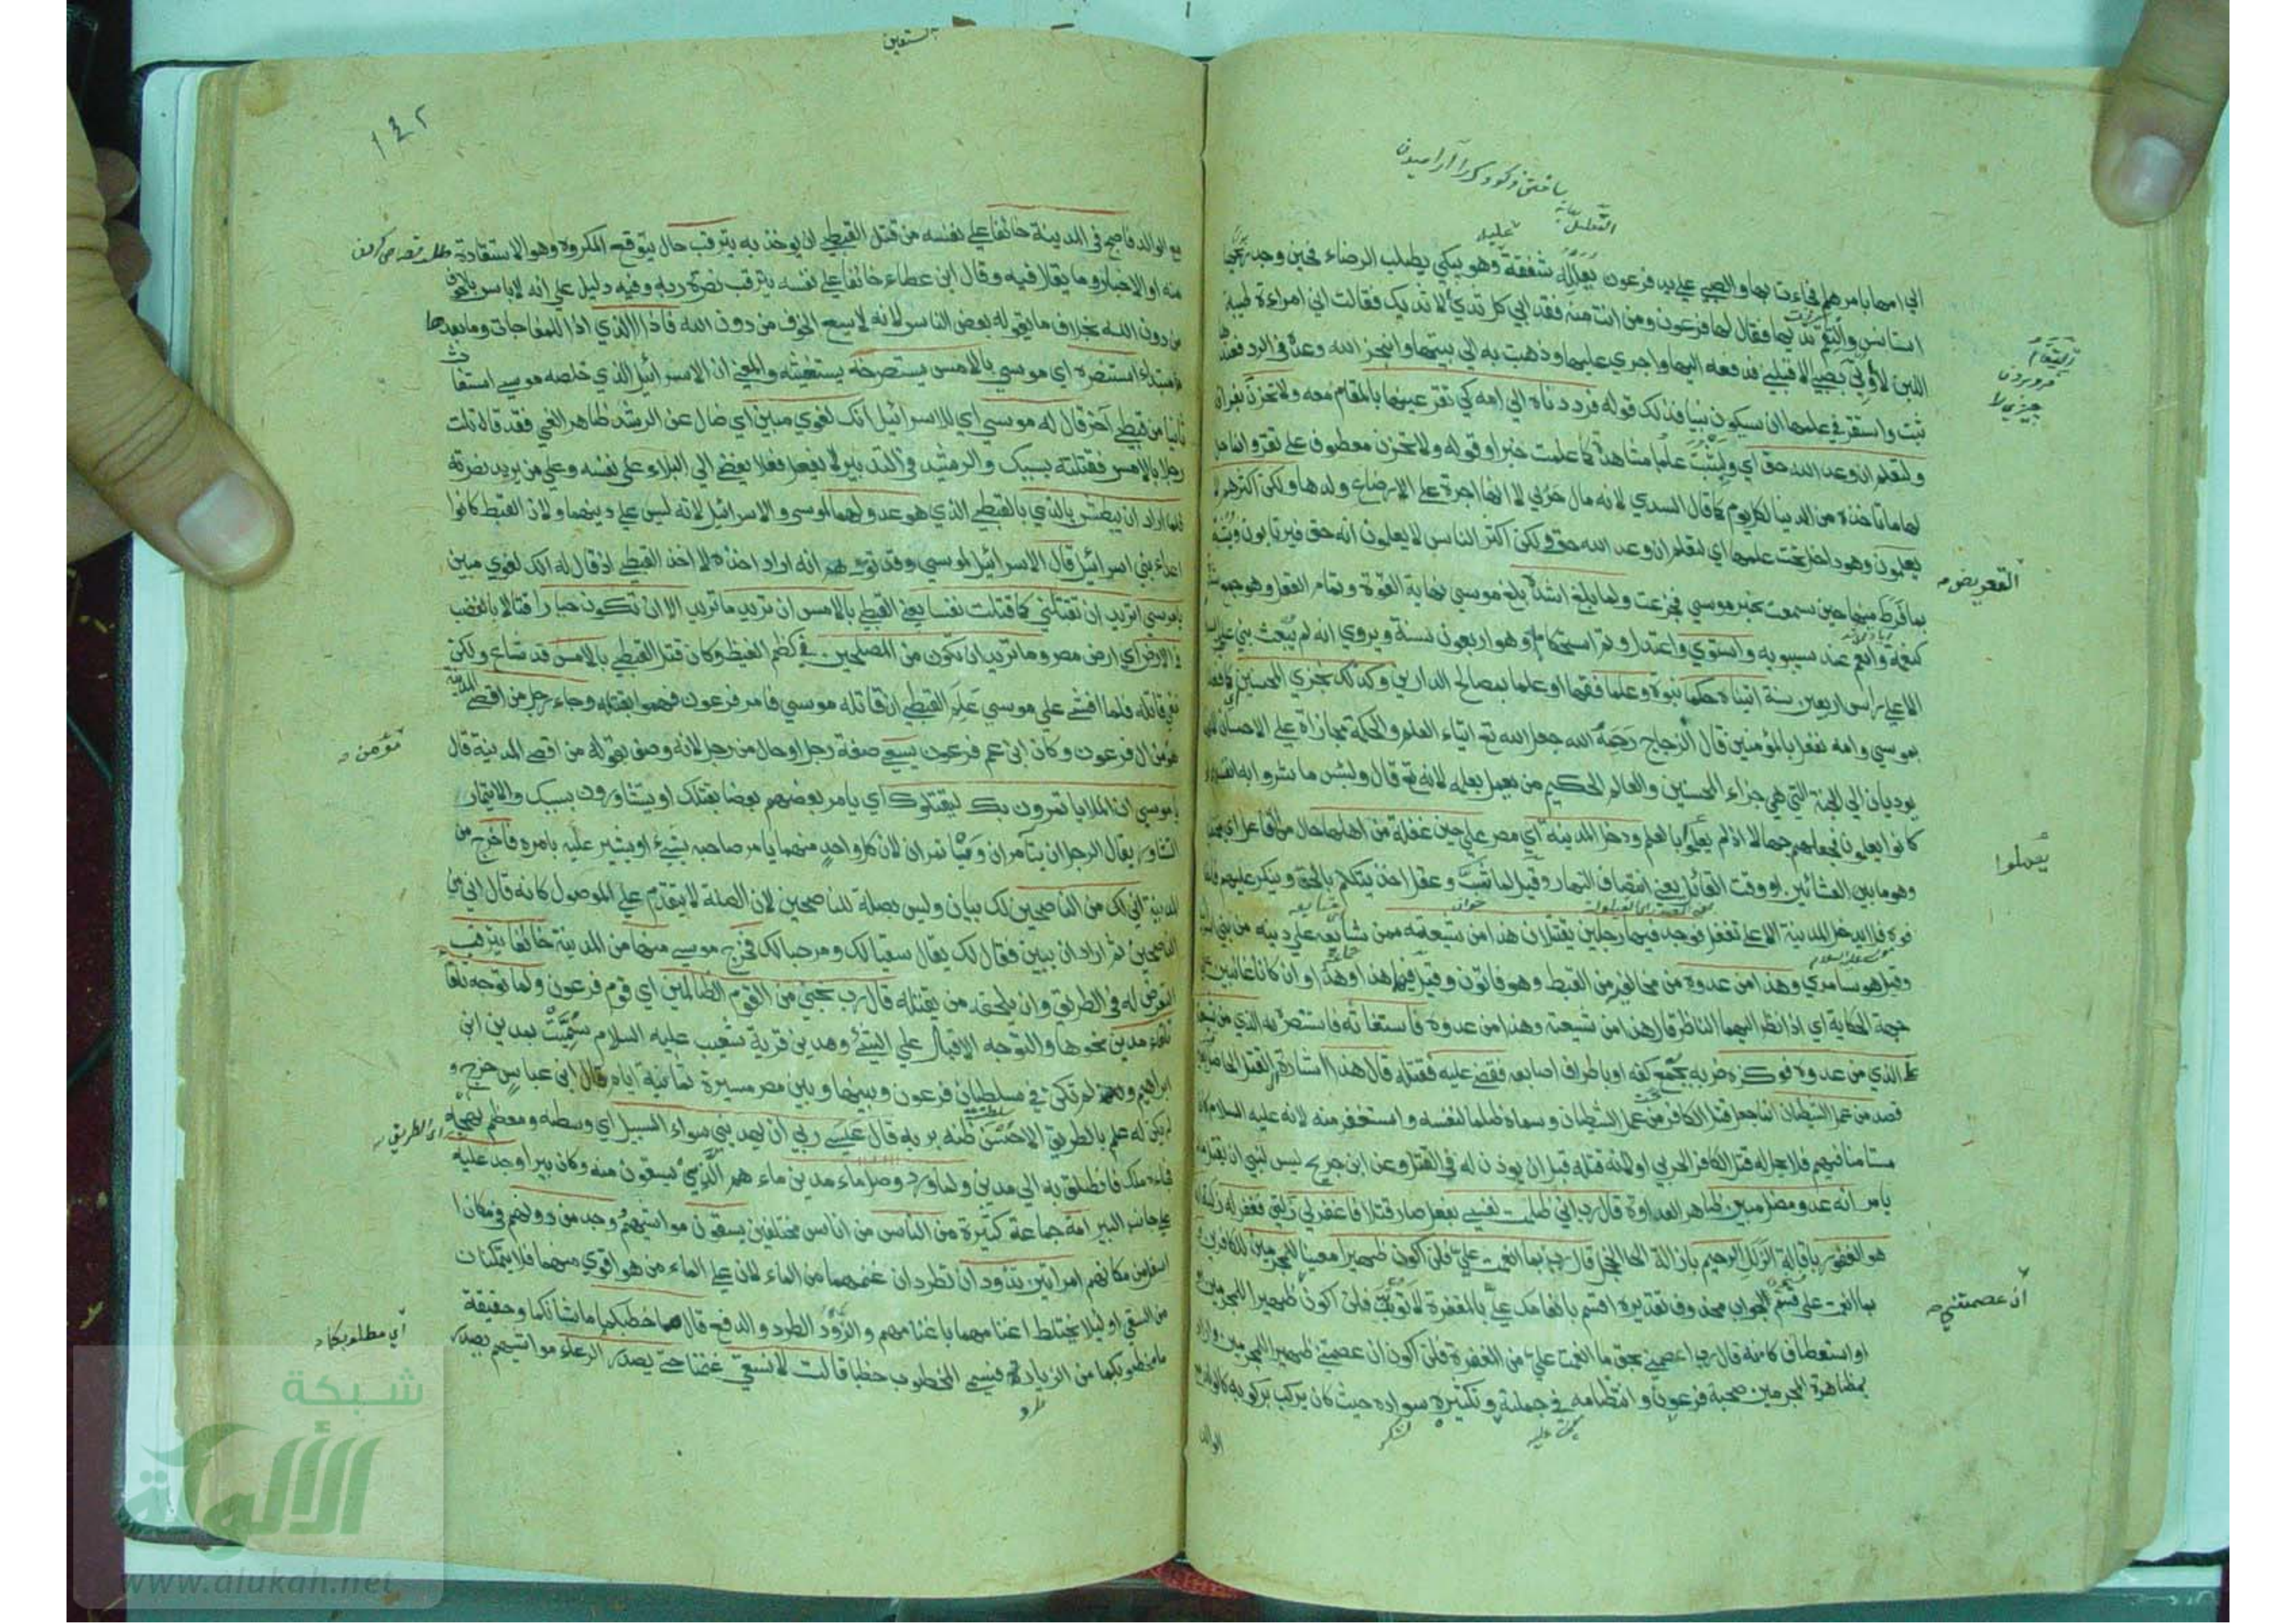 الي امها بامرهم فجاءت بها والصبي علي يد فرعون يعلله شفقة وهو يبكي يطلب الرضاع فحين وجد ريحها
استانس والتقم ثديها فقال لها فرعون ومن انت منه فقد ابي كل ثدي الا ثديك فقالت اني امراءة طيبة
اللبن لا اوتي بصبي الا قبلني فدفعه اليها واجري عليها وذهبت به الي بيتها وانجز الله وعده في الرد فعندها
ثبت واستقر في علمها ان سيكون نبيا فذلك قوله فرددناه الي امه كي تقر عينها بالمقام معه ولا تحزن بفراقه
ولتعلم ان وعد الله حق اي وليثبت علمها مشاهدة كما علمت خبرا وقوله ولا تحزن معطوف علي تقر وانما حل
لها ما تاخذه من الدينار كل يوم كما قال السدي لانه مال حربي لا انها اجرة علي الارضاع ولدها ولكن اكثرهم لا
يعلمون وهو داخل تحت علمها اي لتعلم ان وعد الله حق ولكن اكثر الناس لا يعلمون انه حق فيرتابون
بما فرط منها حين سمعت بخبر موسي فجزعت ولما بلغ اشده بلغ موسي نهاية القوة وتمام العقل وهو جمع شدة
كنعمة وانعم عند سيبويه واستوي واعتدل وتم استحكامه وهو اربعون سنة ويروي انه لم يبعث نبي
الا علي راس اربعين سنة اتيناه حكما نبوة وعلما فقها او علما بمصالح الدارين وكذلك نجزي المحسنين كما فعلنا
بموسي وامه نفعل بالمؤمنين قال الزجاج رحمة الله جعل الله تع ايتاء العلم والحكمة مجازاة علي الاحسان لانهما
يوديان الي الجنة التي هي جزاء المحسنين والعالم الحكيم من يعمل بعلمه لانه تع قال ولبئس ما شروا به انفسهم لو
كانوا يعلمون فجعلهم جهالا اذ لم يعملوا بالعلم ودخل المدينة اي مصر علي حين غفلة من اهلها حال من الفاعل اي مختفيا
وهو ما بين العشائين او وقت القائلة يعني انتصاف النهار وقيل لما شب وعقل اخذ يتكلم بالحق وينكر عليهم
فلا يدخل المدينة الا علي تغفل فوجد فيها رجلين يقتتلان هذا من شيعته ممن شايعه علي دينه من بني اسرائيل
وقيل هو سامري وهذا من عدوه من مخالفيه من القبط وهو فاتون وقيل فيهما هذا وهذا وان كانا غائبين علي
جهة الحكاية اي اذا نظر اليهما الناظر قال هذا من شيعته وهذا من عدوه فاستغاثه فاستنصره الذي من شيعته
علي الذي من عدوه فوكزه ضربه بجمع كفه او باطراف اصابعه فقضي عليه فقتله قال هذا اشارة الي القتل الحاصل بغير
قصد من عمل الشيطان انما جعل قتل الكافر من عمل الشيطان وسماه ظلما لنفسه واستغفر منه لانه عليه السلام كان
مستامنا فيهم فلا يحل له قتل الكافر الحربي او لانه قتله قبل ان يوذن له في القتل وعن ابن جريج ليس لنبي ان يقتل ما لم
يامر انه عدو مضل مبين ظاهر العداوة قال رب اني ظلمت نفسي بفعل صار قتلا فاغفر لي زلتي فغفر له زلته انه
هو الغفور باقالة الزلل الرحيم بازالة الخجل قال رب بما انعمت علي فلن اكون ظهيرا معينا للمجرمين للكافرين
بما انعمت علي قسم الجواب محذوف تقديره اقسم بانعامك علي بالمغفرة لاتوبن فلن اكون ظهيرا للمجرمين
او استعطاف كانه قال رب اعصمني بحق ما انعمت علي من المغفرة فلن اكون ان عصمتني ظهيرا للمجرمين واراد
بمظاهرة المجرمين صحبة فرعون وانتظامه في جملته وتكثيره سواده حيث كان يركب بركوبه كالولد مع
الوالد
يعملوا
ان عصمتني
١٤٢
مع الوالد فاصبح في المدينة خائفا علي نفسه من قتل القبطي ان يوخذ به يترقب حال يتوقع المكروه وهو الاستقادة
منه او الاخبار وما يقال فيه وقال ابن عطاء خائفا علي نفسه يترقب نصرة ربه وفيه دليل علي انه لا باس بالخوف
من دون الله بخلاف ما يقوله بعض الناس لانه لا يسع الخوف من دون الله فاذا الذي اذا للمفاجات وما بعدها
مبتداء استنصره اي موسي بالامس يستصرخه يستغيثه والمعني ان الاسرائيلي الذي خلصه موسي استغاث
ثانيا من قبطي آخر قال له موسي اي للاسرائيلي انك لغوي مبين اي ضال عن الرشد ظاهر الغي فقد قاتلت
رجلا بالامس فقتلته بسببك والرشد في التدبير ان لا يفعل فعلا يفضي الي البلاء علي نفسه وعلي من يريد نصرته
فلما اراد ان يبطش بالذي بالقبطي الذي هو عدو لهما لموسي والاسرائيلي لانه ليس علي دينهما ولان القبط كانوا
اعداء بني اسرائيل قال الاسرائيلي لموسي وقد توهم انه اراد اخذه لا اخذ القبطي اذ قال له انك لغوي مبين
يا موسي اتريد ان تقتلني كما قتلت نفسا يعني القبطي بالامس ان تريد ما تريد الا ان تكون جبارا قتالا بالغضب
في الارض اي ارض مصر وما تريد ان تكون من المصلحين في كظم الغيظ وكان قتل القبطي بالامس قد شاع ولكن
خفي قاتله فلما افشي علي موسي علم القبطي ان قاتله موسي فامر فرعون فهموا بقتله وجاء رجل من اقصي المدينة
مؤمن ال فرعون وكان ابن عم فرعون يسعي صفة رجل او حال من رجل لانه وصف بقوله من اقصي المدينة قال
يا موسي ان الملا ياتمرون بك ليقتلوك اي يامر بعضهم بعضا بقتلك او يتشاورون بسببك والايتمار
التشاور يقال الرجلان يتآمران وياتمران لان كل واحد منهما يامر صاحبه بشيء او يشير عليه بامره فاخرج من
المدينة اني لك من الناصحين لك بيان وليس بصلة للناصحين لان الصلة لا يتقدم علي الموصول كانه قال اني من
الناصحين ثم اراد ان يبين فقال لك يقال سقيا لك ومرحبا لك فخرج موسي منها من المدينة خائفا يترقب
التعرض له في الطريق وان يلحقه من يقتله قال رب نجني من القوم الظالمين اي قوم فرعون ولما توجه تلقاء
تلقاء مدين نحوها والتوجه الاقبال علي الشيء ومدين قرية شعيب عليه السلام سميت بمدين ابن
ابراهيم ولم تكن في سلطان فرعون وبينها وبين مصر مسيرة ثمانية ايام قال ابن عباس خرج و
لم يكن له علم بالطريق الا حسن ظنه بربه قال عسي ربي ان يهديني سواء السبيل اي وسطه ومعظم نهجه
فجاءه ملك فانطلق به الي مدين ولما ورد وصل ماء مدين ماء هم الذي يسقون منه وكان بيرا وجد عليه
علي جانب البير امة جماعة كثيرة من الناس من اناس مختلفين يسقون مواشيهم ووجد من دونهم في مكان
اسفل من مكانهم امراتين تذودان تطردان غنمهما من الماء لان علي الماء من هو اقوي منهما فلا يتمكنان
من السقي او ليلا يختلط اغنامهما باغنامهم والذود الطرد والدفع قال ما خطبكما ما شانكما وحقيقته
ما مخطوبكما من الزياد فيسمي المخطوب خطبا قالتا لا نسقي غنمنا حتي يصدر الرعاء مواشيهم يصدر
مؤمن
اي الطريق
اي مطلوبكما
شبكة
الألوكة
www.alukah.net